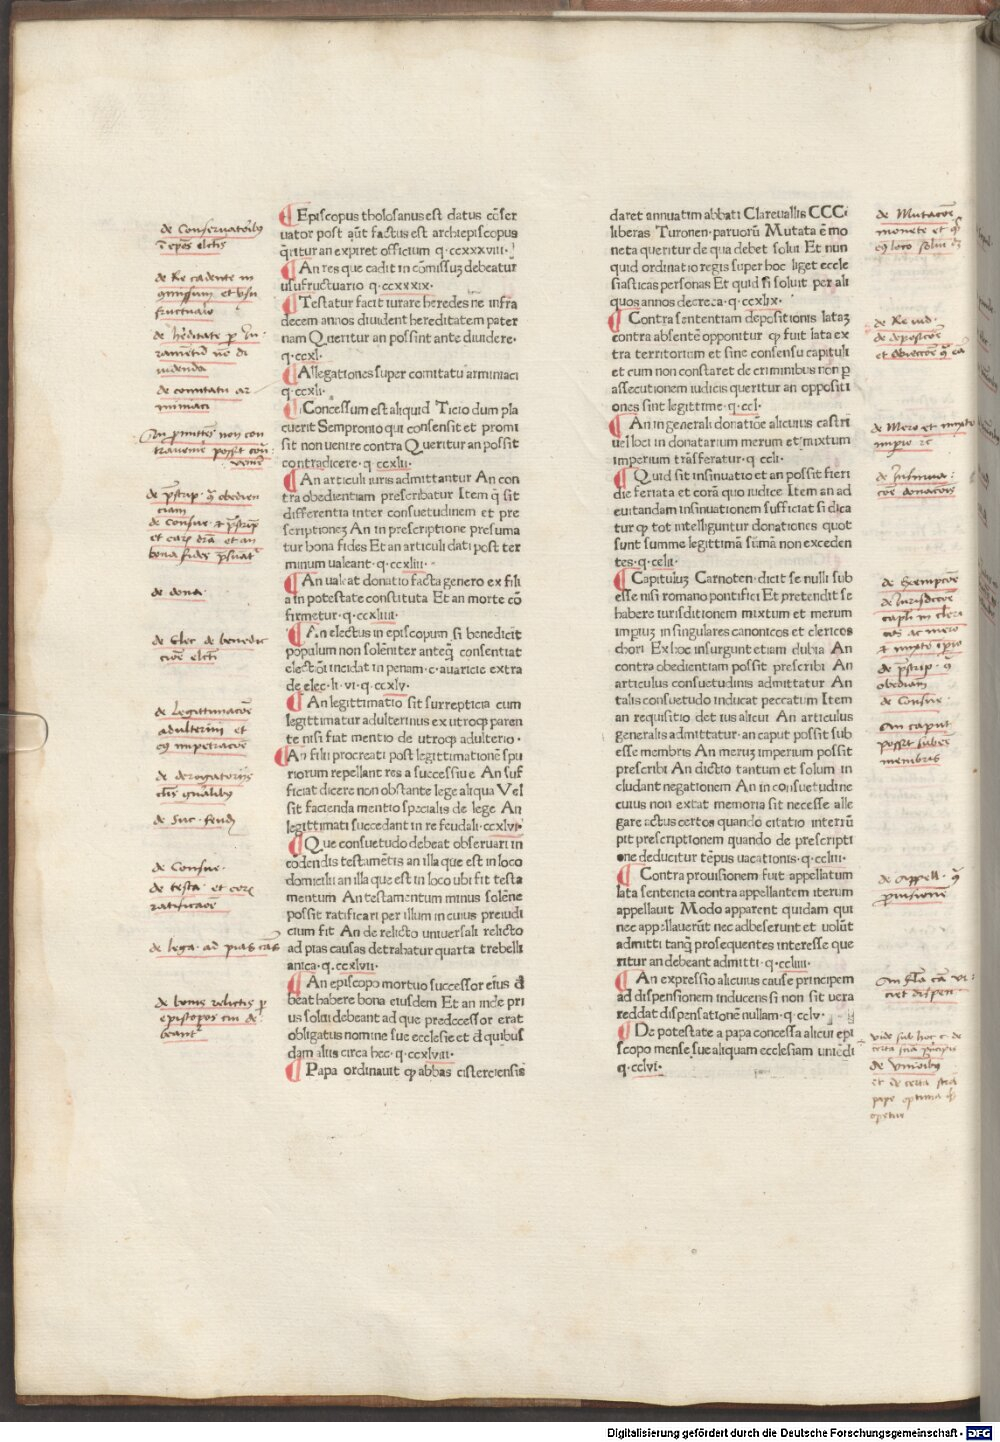 de Conseruatoribus
i epos electis
de Re cadente in
commissum et vsu
fructuario
de hereditate per Iu
ramentum non di
uidenda
de comitatu ar
miniaci
An promittens non con
trauenire possit con
uenire
de prescrip. contra obedien
ciam
de Consue. et prescrip
et earum dria et an
bona fides presumatur
de dona.
de Elec. de benedic
cione electi
de Legittimacione
adulterini et
eius impetracione
de derogatorijs
clausulis generalibus
de Suc. feudi
de Consue.
de testa. et eorum
ratificacione
de lega. ad pias causas
de bonis relictis per
episcopos cui de
beantur
¶ Episcopus tholosanus est datus cōser
uator post qūt factus est archiepiscopus
q̄ritur an expiret officium q·ccxxxviii·
¶ An res que cadit in cōmissuʒ debeatur
usufructuario q·ccxxxix·
¶ Testatur facit iurare heredes ne infra
decem annos diuident hereditatem pater
nam Queritur an possint ante diuidere·
q·ccxl·
¶ Allegationes super comitatu arminiaci
q·ccxli·
¶ Concessum est aliquid Ticio dum pla
cuerit Sempronio qui consensit et promi
sit non uenire contra Queritur an possit
contradicere· q ccxlii·
¶ An articuli iuris admittantur An con
tra obedientiam prescribatur Item q̄ sit
differentia inter consuetudinem et pre
scriptioneʒ An in prescriptione presuma
tur bona fides Et an articuli dati post ter
minum ualeant·q·ccxliii·
¶ An ualeat donatio facta genero ex fili
a in potestate constituta Et an morte cō
firmetur·q·ccxliiii·
¶ An electus in episcopum si benedicit
populum non soleniter anteq̄ consentiat
electōi incidat in penam·c·auaricie extra
de elec·li·vi·q·ccxlv·
¶ An legittimatio sit surrepticia cum
legittimatur adulterinus ex utroqꝫ paren
te nisi fiat mentio de utroqꝫ adulterio·
¶ An filii procreati post legittimationē spu
riorum repellant res a successiue An suf
ficiat dicere non obstante lege aliqua Vel
sit facienda mentio specialis de lege An
legittimati succedant in re feudali·ccxlvi·
¶ Que consuetudo debeat obseruari in
codendis testamētis an illa que est in loco
domicilii an illa que est in loco ubi fit testa
mentum An testamentum minus solēne
possit ratificari per illum in cuius preiudi
cium fit An de relicto uniuersali relicto
ad pias causas detrabatur quarta trebelli
anica·q.ccxlvii·
¶ An episcopo mortuo successor eius d
beat habere bona eiusdem Et an inde pri
us solui debeant ad que predecessor erat
obligatus nomine sue ecclesie et d quibus
dam aliis circa hec·q·ccxlviii·
¶ Papa ordinauit ꝙ abbas cisterciensis
daret annuatim abbati Clareuallis CCCi
liberas Turonen·paruorū Mutata ē mo
neta queritur de qua debet solui Et nun
quid ordinatio regis super hoc liget eccle
siasticas personas Et quid si soluit per ali
quos annos decreta·q·ccxlix·
¶ Contra sententiam depositionis lataʒ
contra absentē opponitur ꝙ fuit lata ex
tra territorium et sine consensu capituli
et cum non constaret de criminibus non ꝑ
assecutionem iudicis queritur an oppositi
ones sint legittime·q·ccl·
¶ An in generali donatiōe alicuius castri
uel loci in donatarium merum et mixtum
imperium trāsferatur·q ccli·
¶ Quid sit insinuatio et an possit fieri
die feriata et corā quo iudice Item an ad
euitandam insinuationem sufficiat si dica
tur ꝙ tot intelliguntur donationes quot
sunt summe legittimā sūmā non exceden
tes·q·cclii·
¶ Capituluʒ Carnoten·dicit se nulli sub
esse nisi romano pontifici Et pretendit se
habere iurisditionem mixtum et merum
impiuʒ in singulares canonicos et clericos
chori Ex hoc insurgunt etiam dubia An
contra obedientiam possit prescribi An
articulus consuetudinis admittatur An
talis consuetudo inducat peccatum Item
an requisitio det ius alicui An articulus
generalis admittatur·an caput possit sub
esse membris An meruʒ imperium possit
prescribi An dictio tantum et solum in
cludant negationem An in consuetudine
cuius non extat memoria sit necesse alle
gare actus certos quando citatio interrū
pit prescriptionem quando de prescripti
one deducitur tēpus uacationis·q·ccliii·
¶ Contra prouisionem fuit appellatum
lata sentencia contra appellantem iterum
appellauit Modo apparent quidam qui
nec appellauerūt nec adheserunt et uolūt
admitti tanq̄ prosequentes interesse que
ritur an debeant admitti·q·ccliiii·
¶ An expressio alicuius cause principem
ad dispensionem inducens si non sit uera
reddat dispensationē nullam·q·cclv·
¶ De potestate a papa concessa alicui epi
scopo mense sue aliquam ecclesiam uniēdi
q·cclvi·
de Mutacione
monete et
eius loco solui
de Re iud.
de deposicione
et obieccione contra ea
de Mero et mixto
imperio rc
de Insinua
cione donacionis
de Exempcione
de Iurisdiccione
capli in cleri
cos ac mero
et mixto imperio
de prescrip. contra
obedienciam
de Consue.
An caput
possit subesse
membris
de Appell. contra
prouisionem
An falsa causa vi
ciet dispen.
vide sub hoc c. de
certa
de vnionibus
et de certa
pape optima
Digitalisierung gefördert durch die Deutsche Forschungsgemeinschaft · DFG